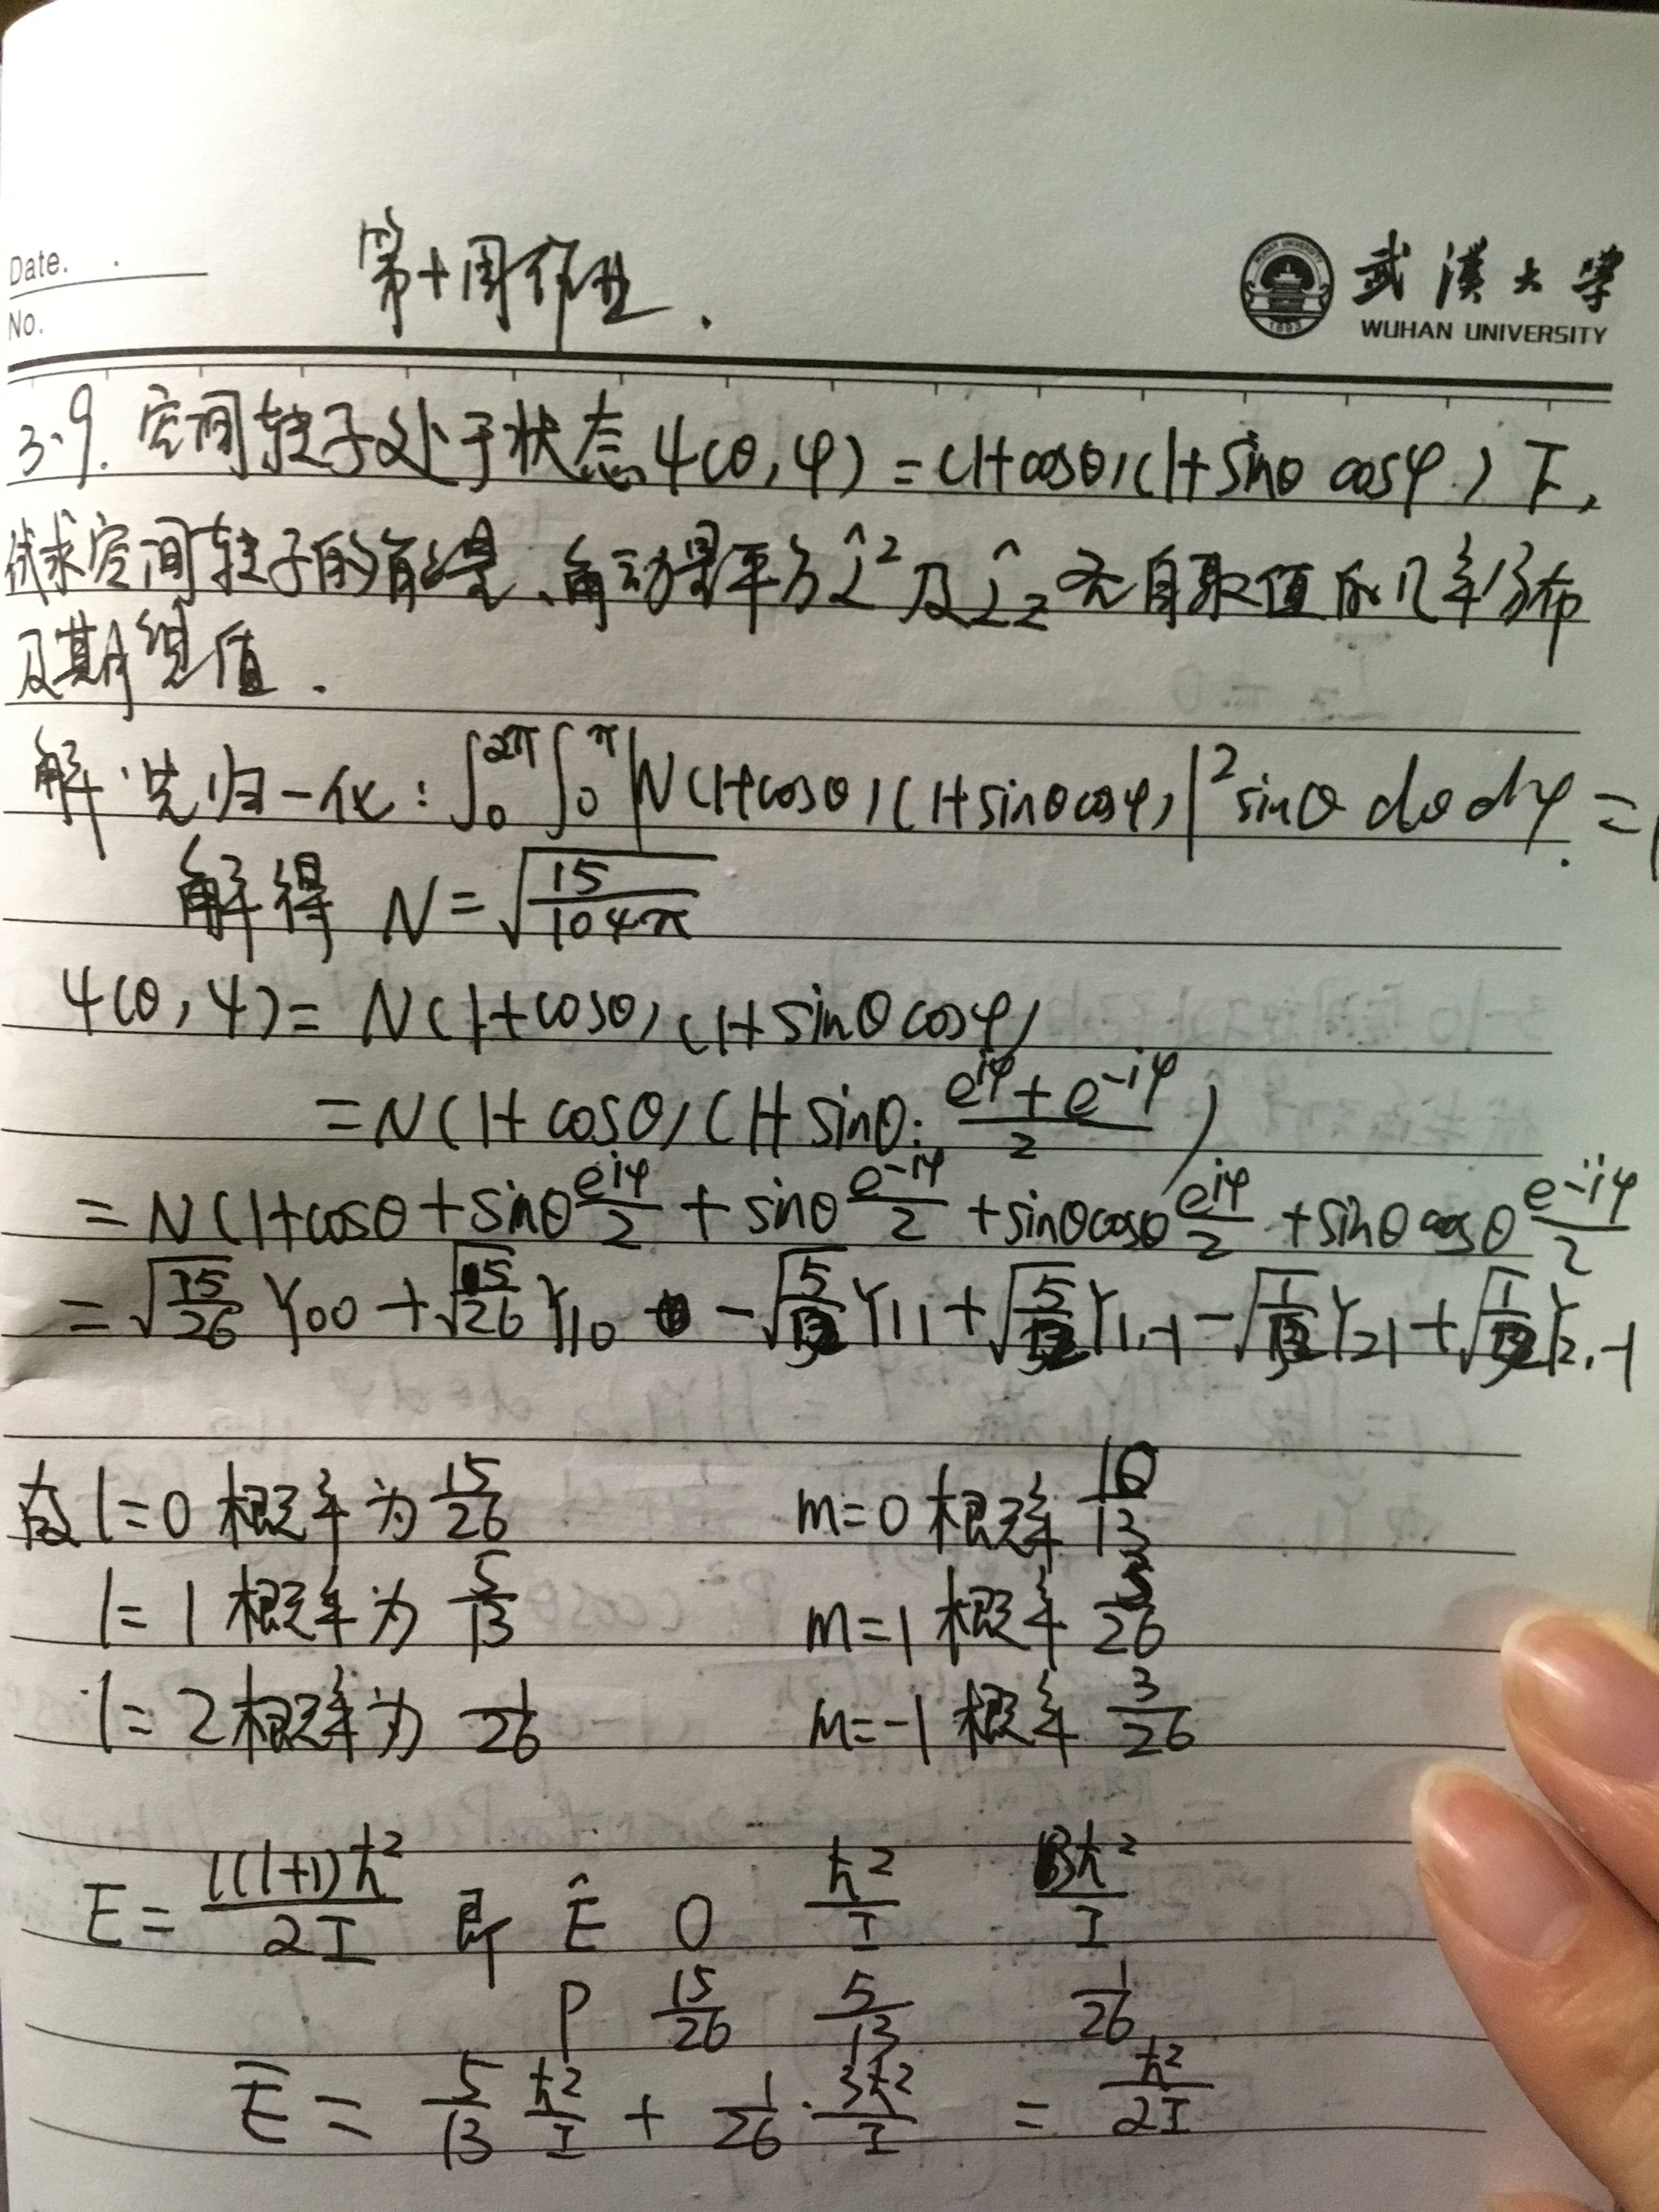 Date.
第十周作业.
武漢大學
No.
WUHAN UNIVERSITY
1893
3.9. 空间转子处于状态 ψ(θ,φ) = (1+cosθ)(1+sinθ cosφ) 下,
试求空间转子的能量、角动量平方 L̂² 及 L̂z 各自取值的几率分布
及期望值.
解:先归一化: ∫₀^{2π}∫₀^π |N(1+cosθ)(1+sinθcosφ)|² sinθ dθ dφ = 1
解得 N = √(15/104π)
ψ(θ,φ) = N(1+cosθ)(1+sinθcosφ)
= N(1+cosθ)(1+sinθ·(e^{iφ}+e^{-iφ})/2)
= N(1+cosθ+sinθ e^{iφ}/2 + sinθ e^{-iφ}/2 + sinθcosθ e^{iφ}/2 + sinθcosθ e^{-iφ}/2
= √(15/26) Y₀₀ + √(5/26) Y₁₀ - √(5/) Y₁₁ + √(5/) Y₁,₋₁ - √(1/) Y₂₁ + √(1/) Y₂,₋₁
故 l=0 概率为 15/26 m=0 概率 10/13
l=1 概率为 5/13 m=1 概率 3/26
l=2 概率为 1/26 m=-1 概率 3/26
E = l(l+1)ħ²/2I 即 Ê 0 ħ²/I 3ħ²/I
P 15/26 5/13 1/26
Ē = 5/13 ħ²/I + 1/26 · 3ħ²/I = ħ²/2I